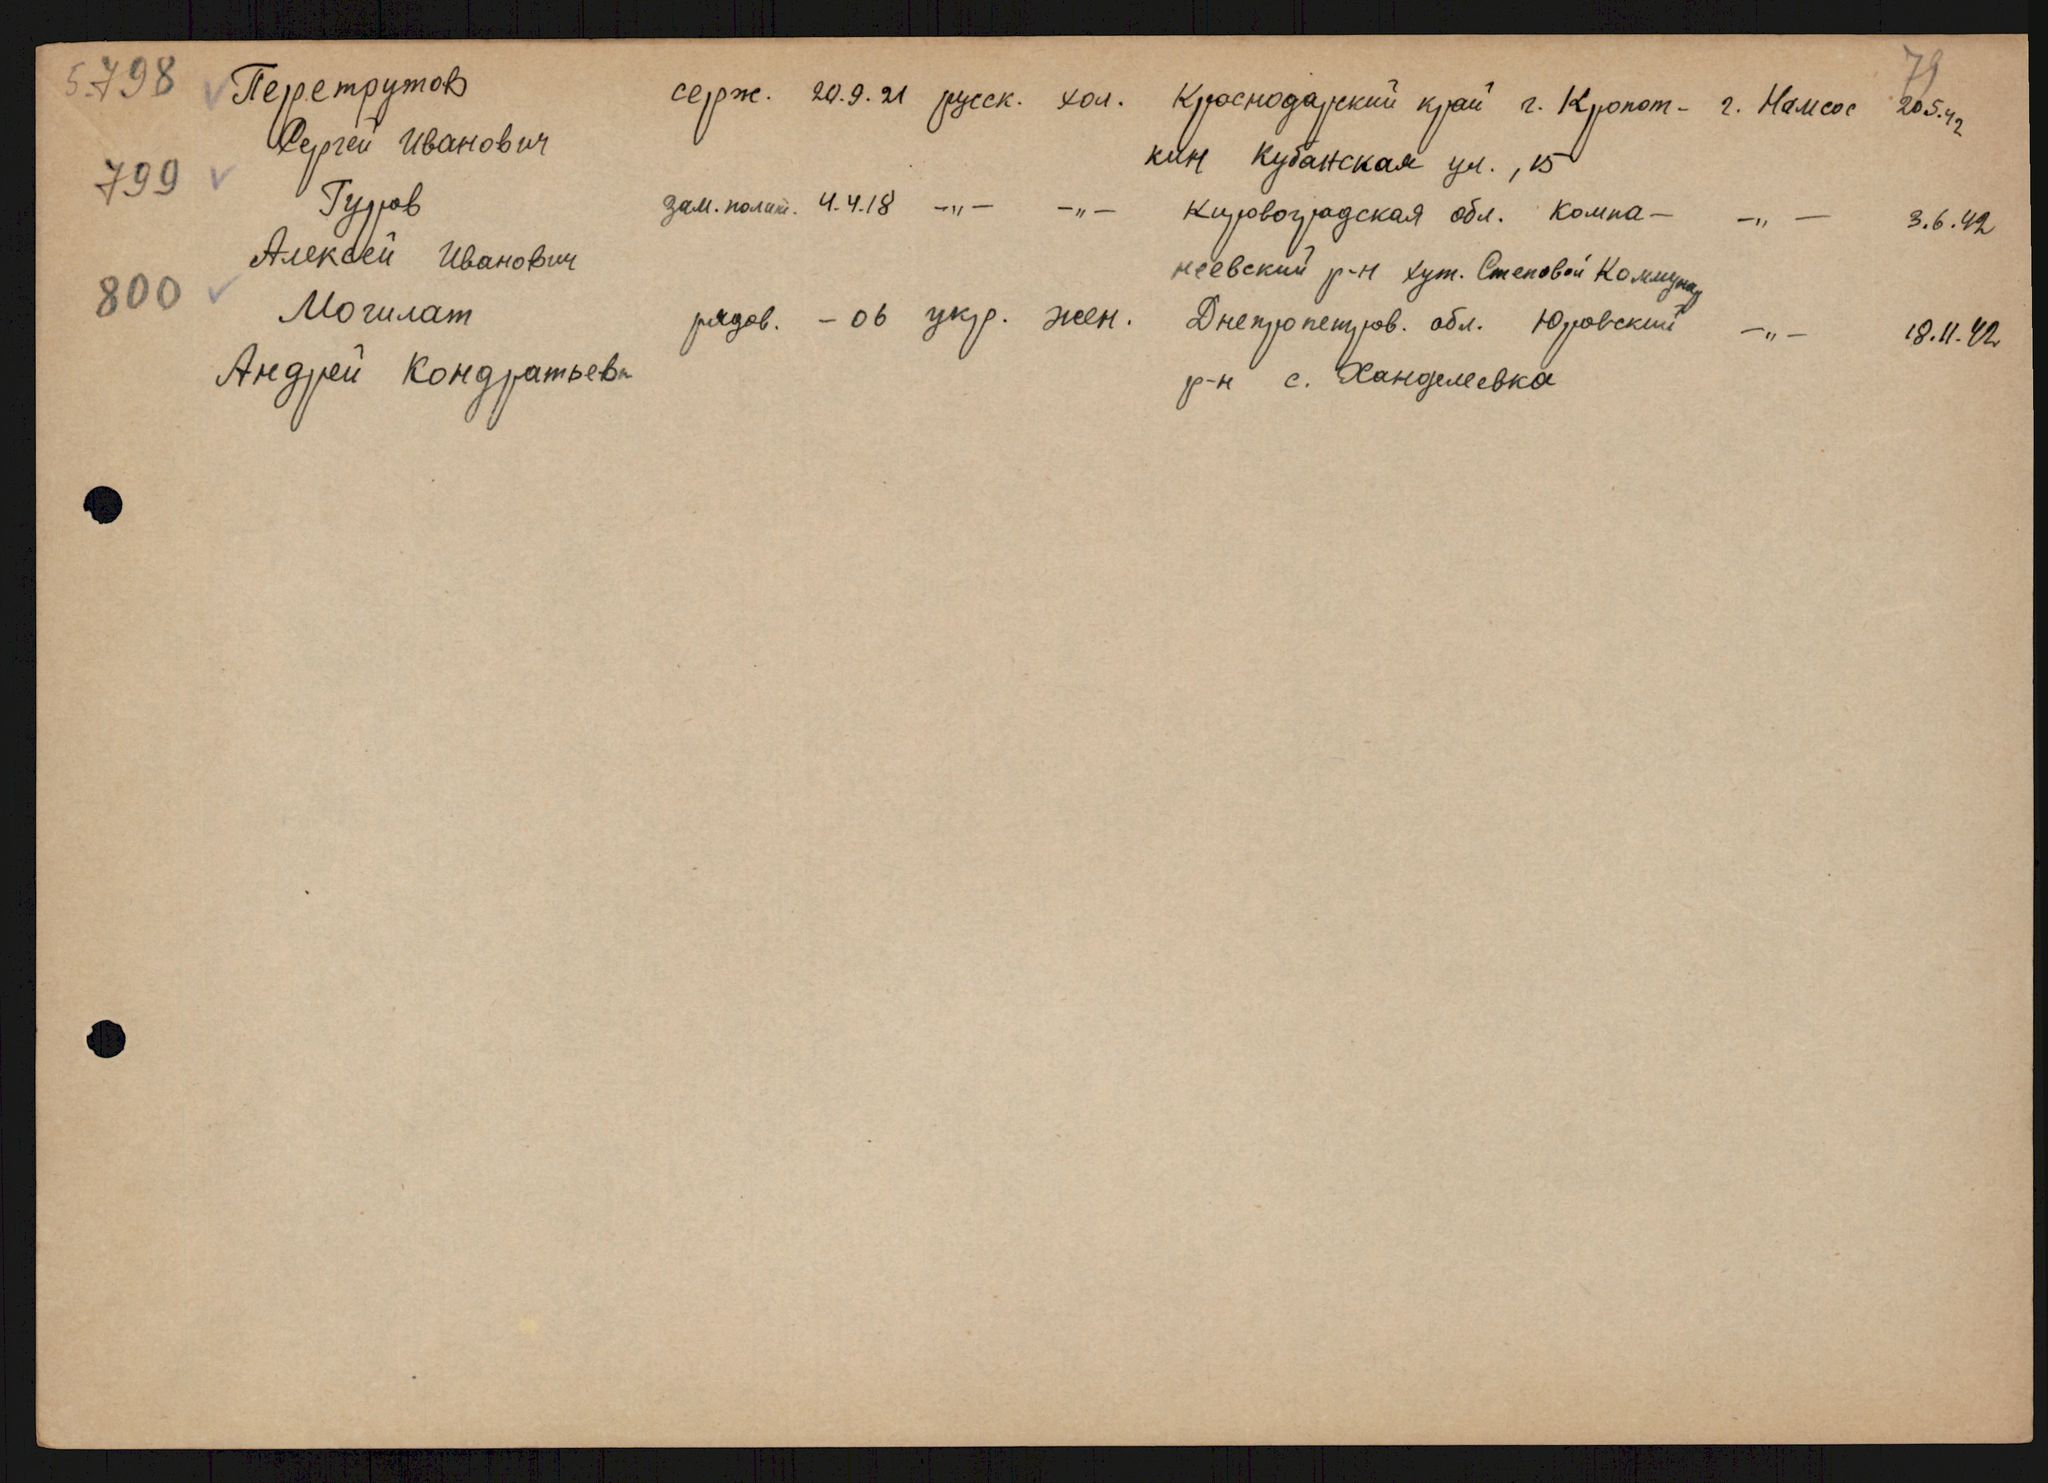 79
5.798 Перетрутов серж. 20.9.21 русск. хол. Краснодарский край г. Кропот- г. Намсос 20.5.42
Сергей Иванович кин Кубанская ул., 15
799 Гуров зам. полит. 4.4.18 -"- -"- Кировоградская обл. Компа- -"- 3.6.42
Алексей Иванович неевский р-н хут. Степовой Коммунар
800 Могилат рядов. - 06 укр. жен. Днепропетров. обл. Юровский -"- 18.11.42
Андрей Кондратьев р-н с. Ханделеевка